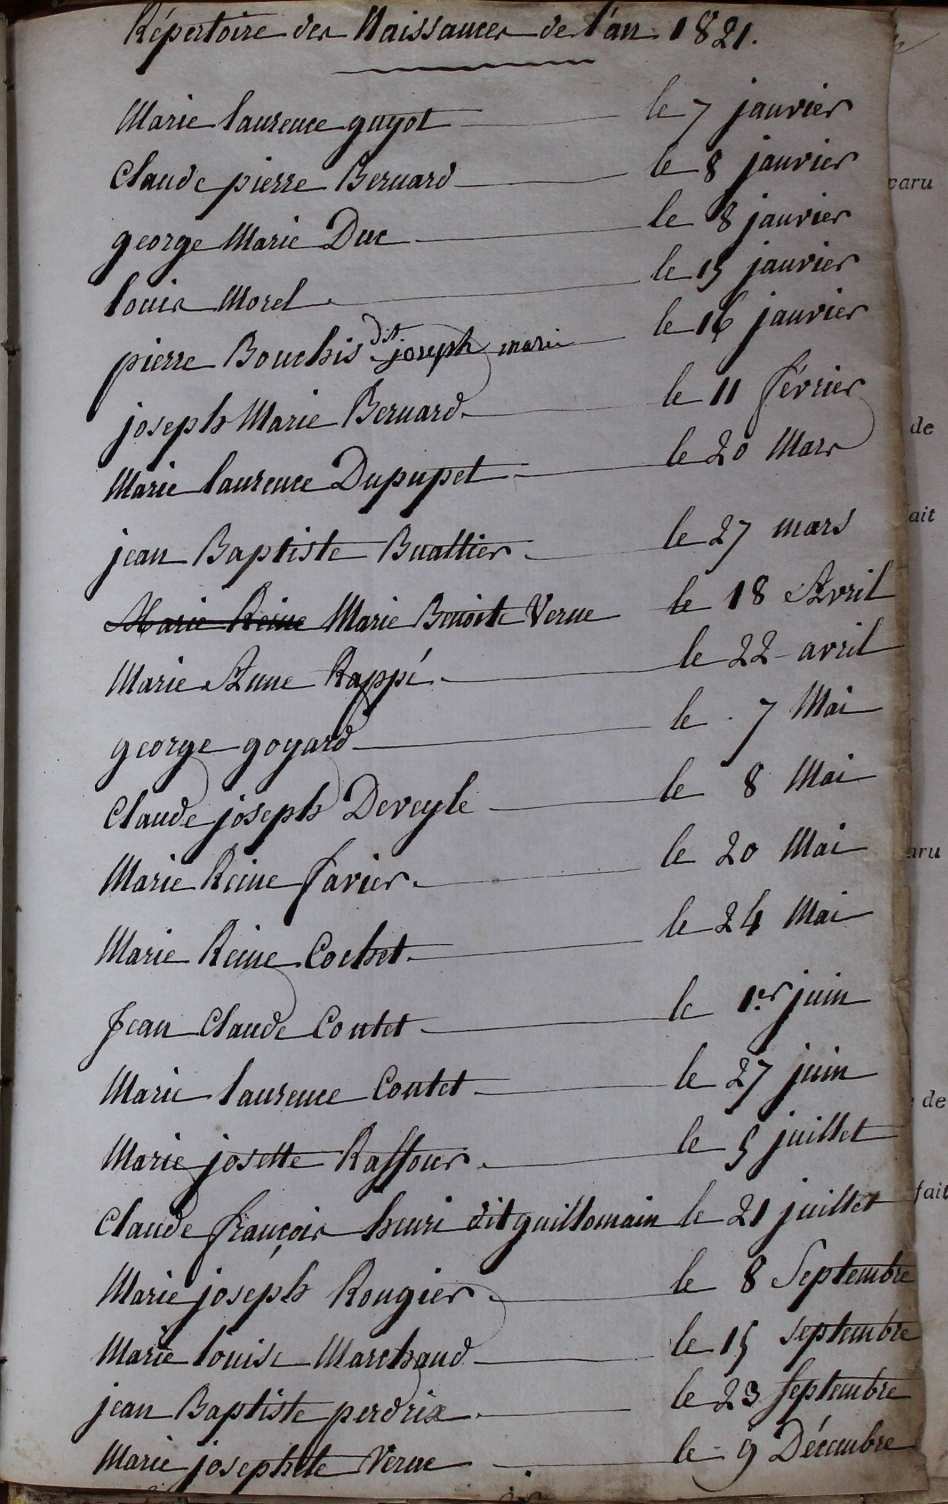 Répertoire des Naissances de l'an 1821.
Marie laurence guyot le 7 janvier
Claude pierre Bernard le 8 janvier
george Marie Duc le 8 janvier
louis Morel le 15 janvier
pierre Bouchis dit joseph marie le 16 janvier
joseph Marie Bernard le 11 février
Marie laurence Dupupet le 20 Mars
jean Baptiste Buattier le 27 mars
Marie Reine Marie Benoite Verne le 18 Avril
Marie Anne Rappé le 22 avril
george goyard le 7 Mai
Claude joseph Deveyle le 8 Mai
Marie Reine favier le 20 Mai
Marie Reine Cochet le 24 Mai
Jean Claude Contet le 1er juin
Marie laurence Contet le 27 juin
Marie josette Raffour le 5 juillet
Claude françois henri dit guillomain le 21 juillet
Marie joseph Rougier le 8 Septembre
Marie louise Marchand le 15 septembre
jean Baptiste perdrix le 23 Septembre
Marie josephte Verne le 9 Décembre
paru
de
fait
aru
de
fait